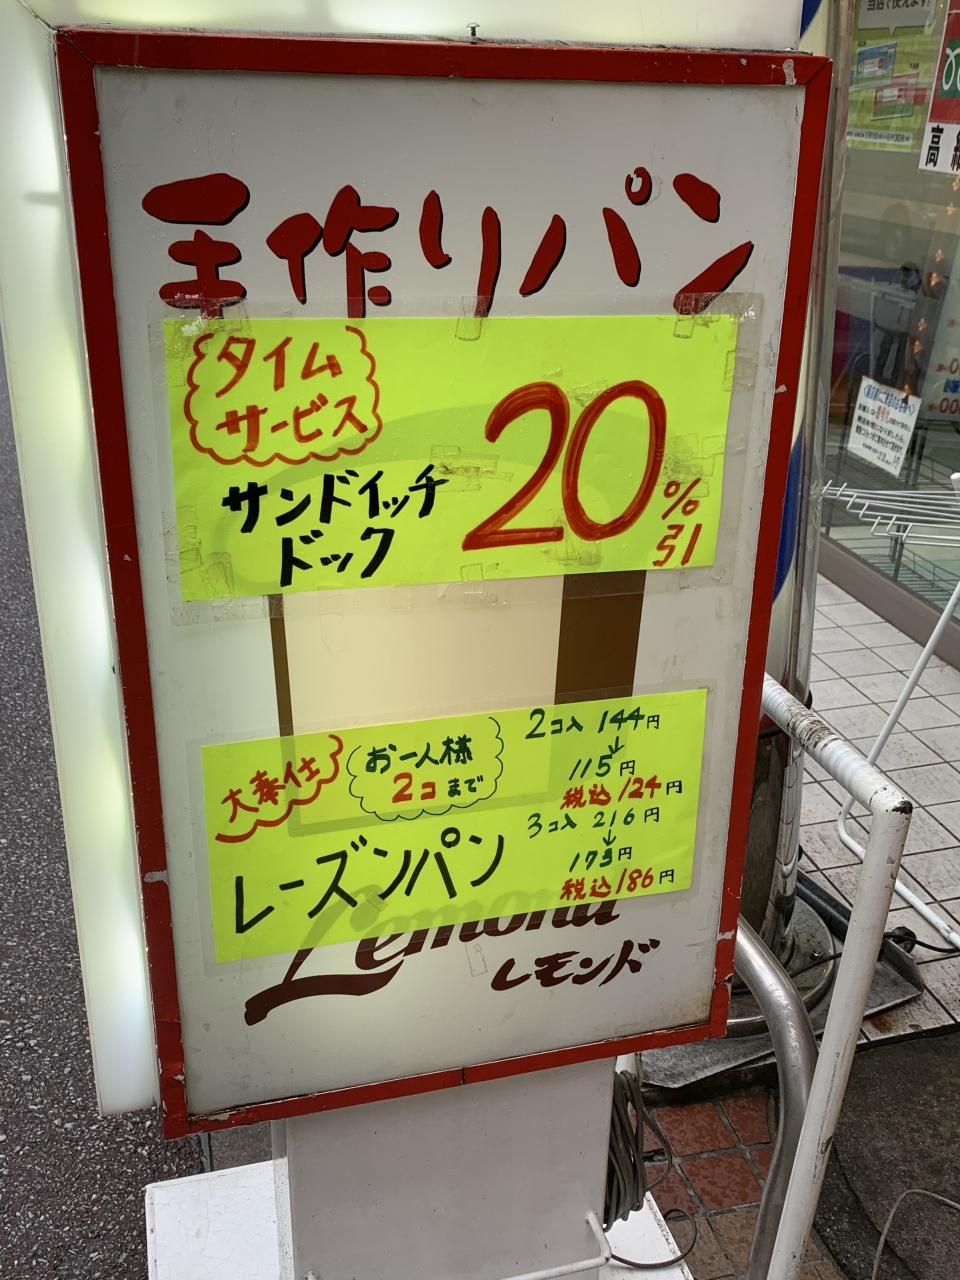 手作りパン
タイム
サービス
サンドイッチ
ドック
20%引
大奉仕
お一人様
2コまで
レーズンパン
2コ入 144円
↓
115円
税込124円
3コ入 216円
↓
173円
税込186円
Lemond
レモンド
高級